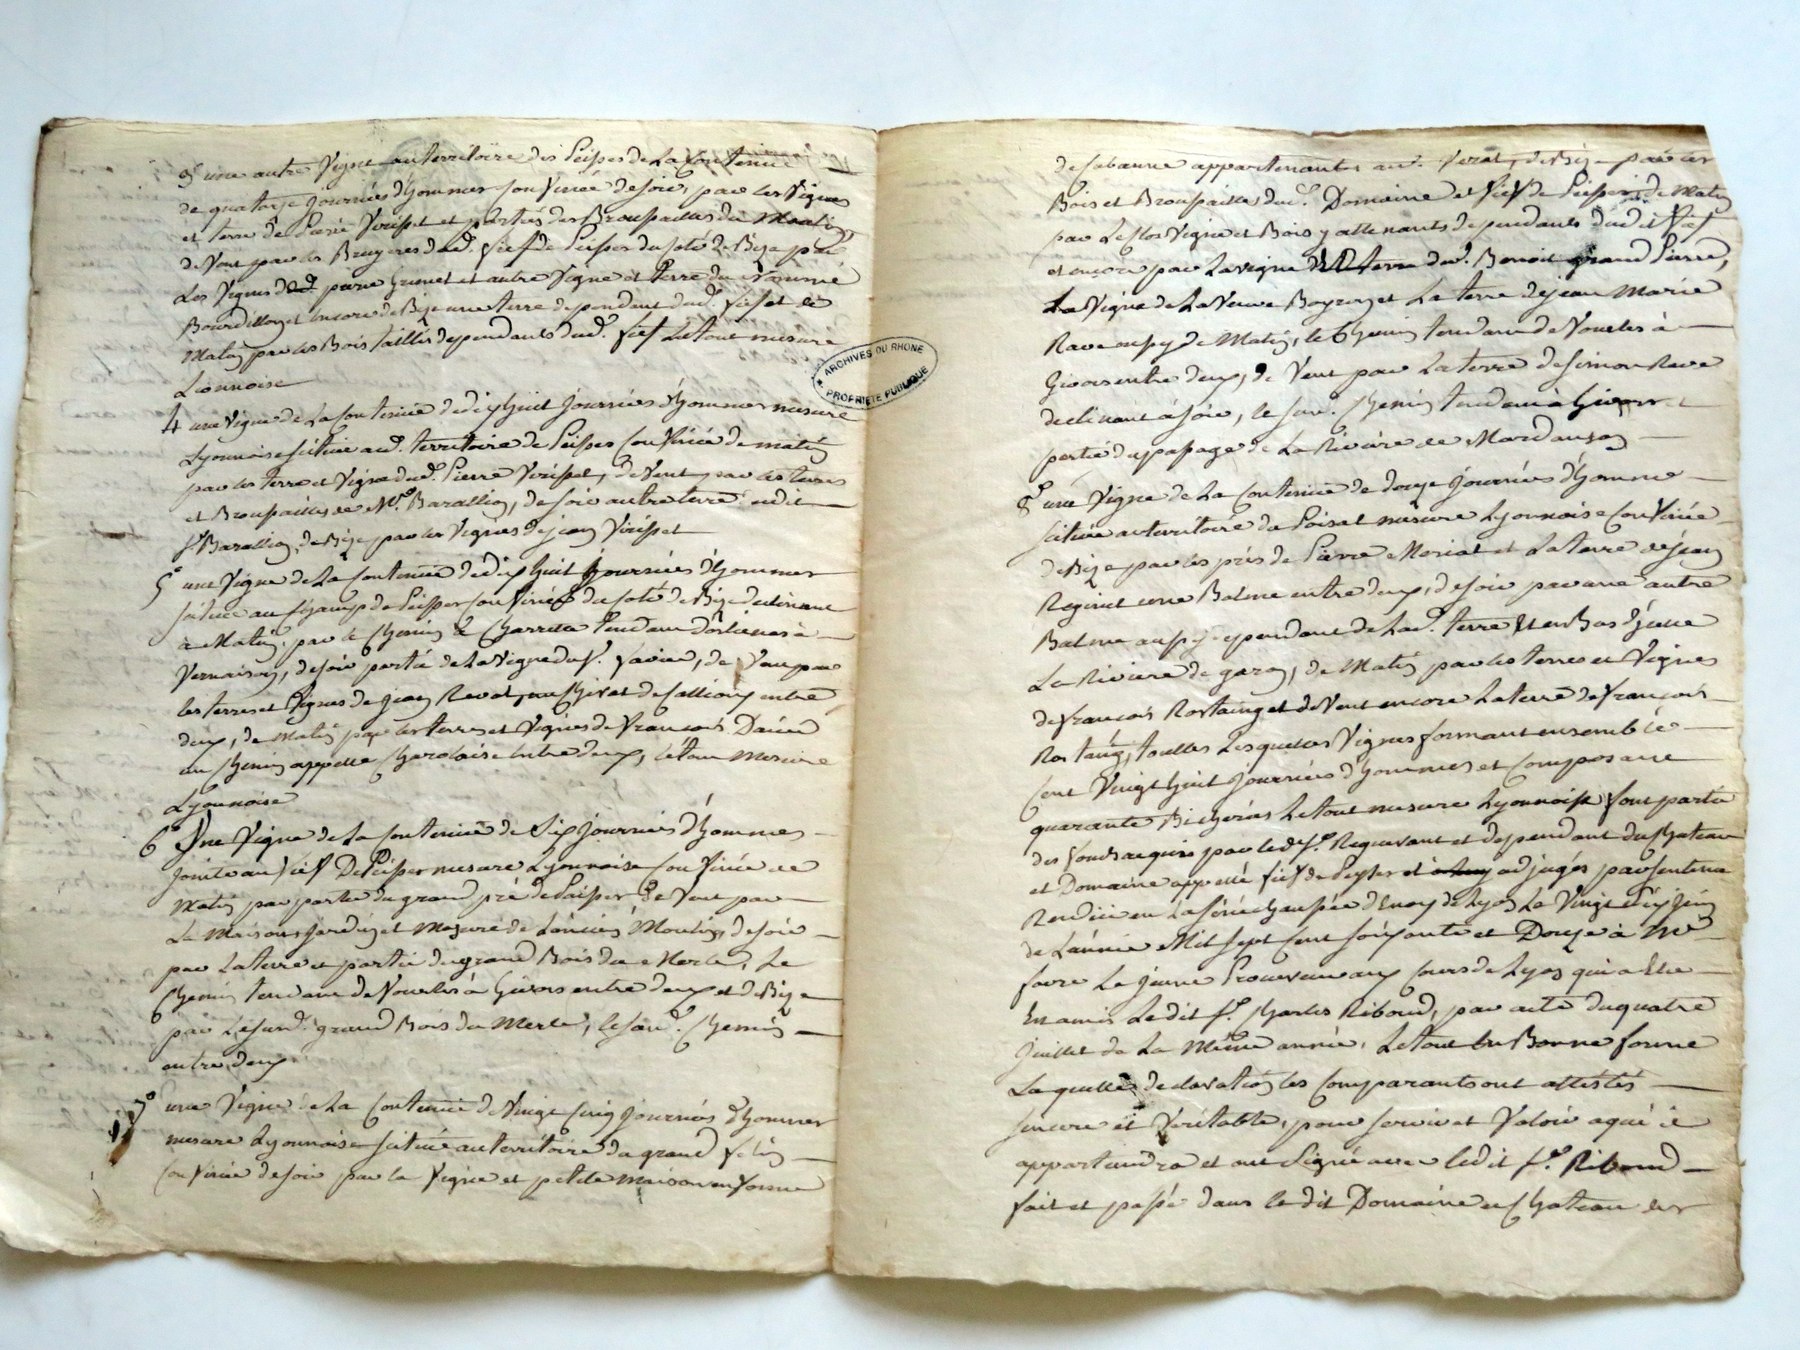 3° une autre Vigne au territoire des Peisses de La Contenue
de quatorze Journées d'hommes Confinée de soir, par les Vignes
et terre de Pierre Verisset et partie des Broussailles du Moulin,
de Vent par les Bruyeres dud. fief de Peisser du coté de Bize par
Les Vignes dud pierre Grenet et autre Vigne et Terre du Nommé
Bourdillon et encore de Bize une terre dependant dud. fief et de
Matin par les Bois taillis dependants dud. fief Le tout mesure
Lionnoise
4 une Vigne de La Contenue de dix huit Journées d'hommes mesure
Lyonnoise située aud. territoire de Peisser Confinée de matin
par les terre et Vigne dud. Pierre Verisset, de Vent par les terres
et Broussailles de Mr. Barallion, de soir autre terre dudit
Sr Barallion, de Bize par les Vignes de jean Verisset
5° une Vigne de La Contenue de dix huit Journées d'hommes
située au Champ de Peisser Confinée du coté de Bize declinant
à Matin, par le Chemin de Charrette tendant d'orlienas à
Vernaison, de soir partie de La Vigne du Sr. favier, de Vent par
les terres et Vignes de jean Revat, un Chirat de Caillioux entre
deux, de Matin par les terres et Vignes de francois Daniel
un Chemin appellé Charolais entre deux, le tout Mesure
Lyonnoise
6° Une Vigne de La Contenue de Six Journées d'hommes
jointe au fief De Peisser mesure Lyonnoise Confinée de
Matin par partie du grand pré de Peisser de Vent par
La Maison, jardin et Mazure de L'ancien Moulin, de soir
par La terre et partie du grand Bois du Merle, Le
Chemin tendant de Vourles à Givors entre deux et de Bize
par Lesusd. grand Bois du Merle, lesusd. Chemin
entre deux
7° une Vigne de La Contenue de Vingt Cinq Journées d'hommes
mesure Lyonnoise située au territoire du grand felin
Confinée de soir par la Vigne et petite maison en forme
de Cabanne appartenantes aud. Verat, de Bize par les
Bois et Broussailles dud. Domaine et fief de Peisser, de Matin
par Les Clos Vigne et Bois y attenants dependants dudit fief
et encore par La vigne et terre du Sr. Benoit grand Pierre,
La Vigne de La Veuve Boyron et La terre de jean Marie
Rave aussy de Matin, le Chemin tendant de Vourles à
Givors entre deux, de Vent par La terre de simon Rave
declinant à soir, le susd. Chemin tendant à Givors et
partie du passage de La Riviere de Mordanson
8° une Vigne de La Contenue de douze Journées d'homme
située au territoire du Poiset mesure Lyonnoise Confinée
de Bize par les prés de Pierre Moriat et La terre de jean
Reginet une Balme entre deux, de soir par une autre
Balme aussy dependant de La d. terre et en Bas d'icelle
La Riviere de garon, de Matin par les terres et Vignes
de francois Rostaing et de Vent encore La terre de francois
Rostaing, toutes Lesquelles Vignes formant ensemble
Cent Vingt huit Journées d'hommes et Composant
quarante Bicherées Le tout mesure Lyonnoise font partie
des fonds acquis par led. Sr. Requerant et dependant du Chateau
et Domaine appellé fief de Peysser et adjugés par sentence
Rendüe en La sénéchaussée d'Enay de Lyon Le Vingt Six juin
de L'année Mil sept cent soixante et Douze à Me
favre Le jeune Procureur aux Cours de Lyon qui a Elu
En amis Le dit Sr. Charles Riboud, par acte du quatre
Juillet de La Même année, Le tout En Bonne forme
La quelle declaration les Comparants ont attestés
sincere et Veritable, pour servir et Valoir a qui il
appartiendra et ont Signé avec ledit Sr. Riboud
fait et passé dans le dit Domaine et Chateau les
ARCHIVES DU RHONE
PROPRIETE PUBLIQUE